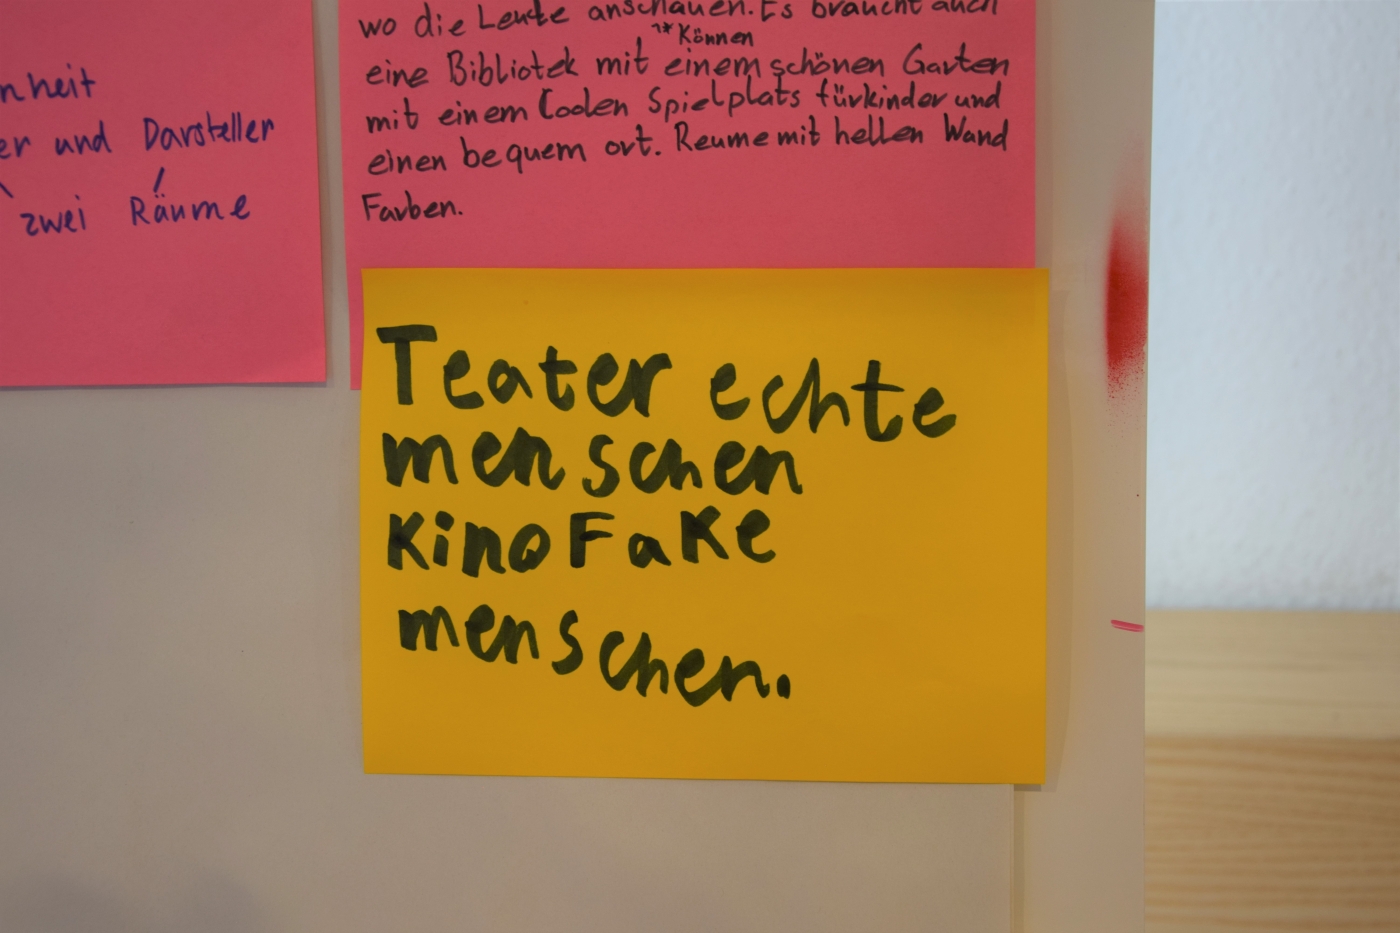 nheit
er und Darsteller
zwei Räume
wo die Leute anschauen. Es braucht auch
* Können
eine Bibliotek mit einem schönen Garten
mit einem Coolen Spielplats fürkinder und
einen bequem ort. Reume mit hellen Wand
Farben.
Teater echte
menschen
Kino Fake
menschen.